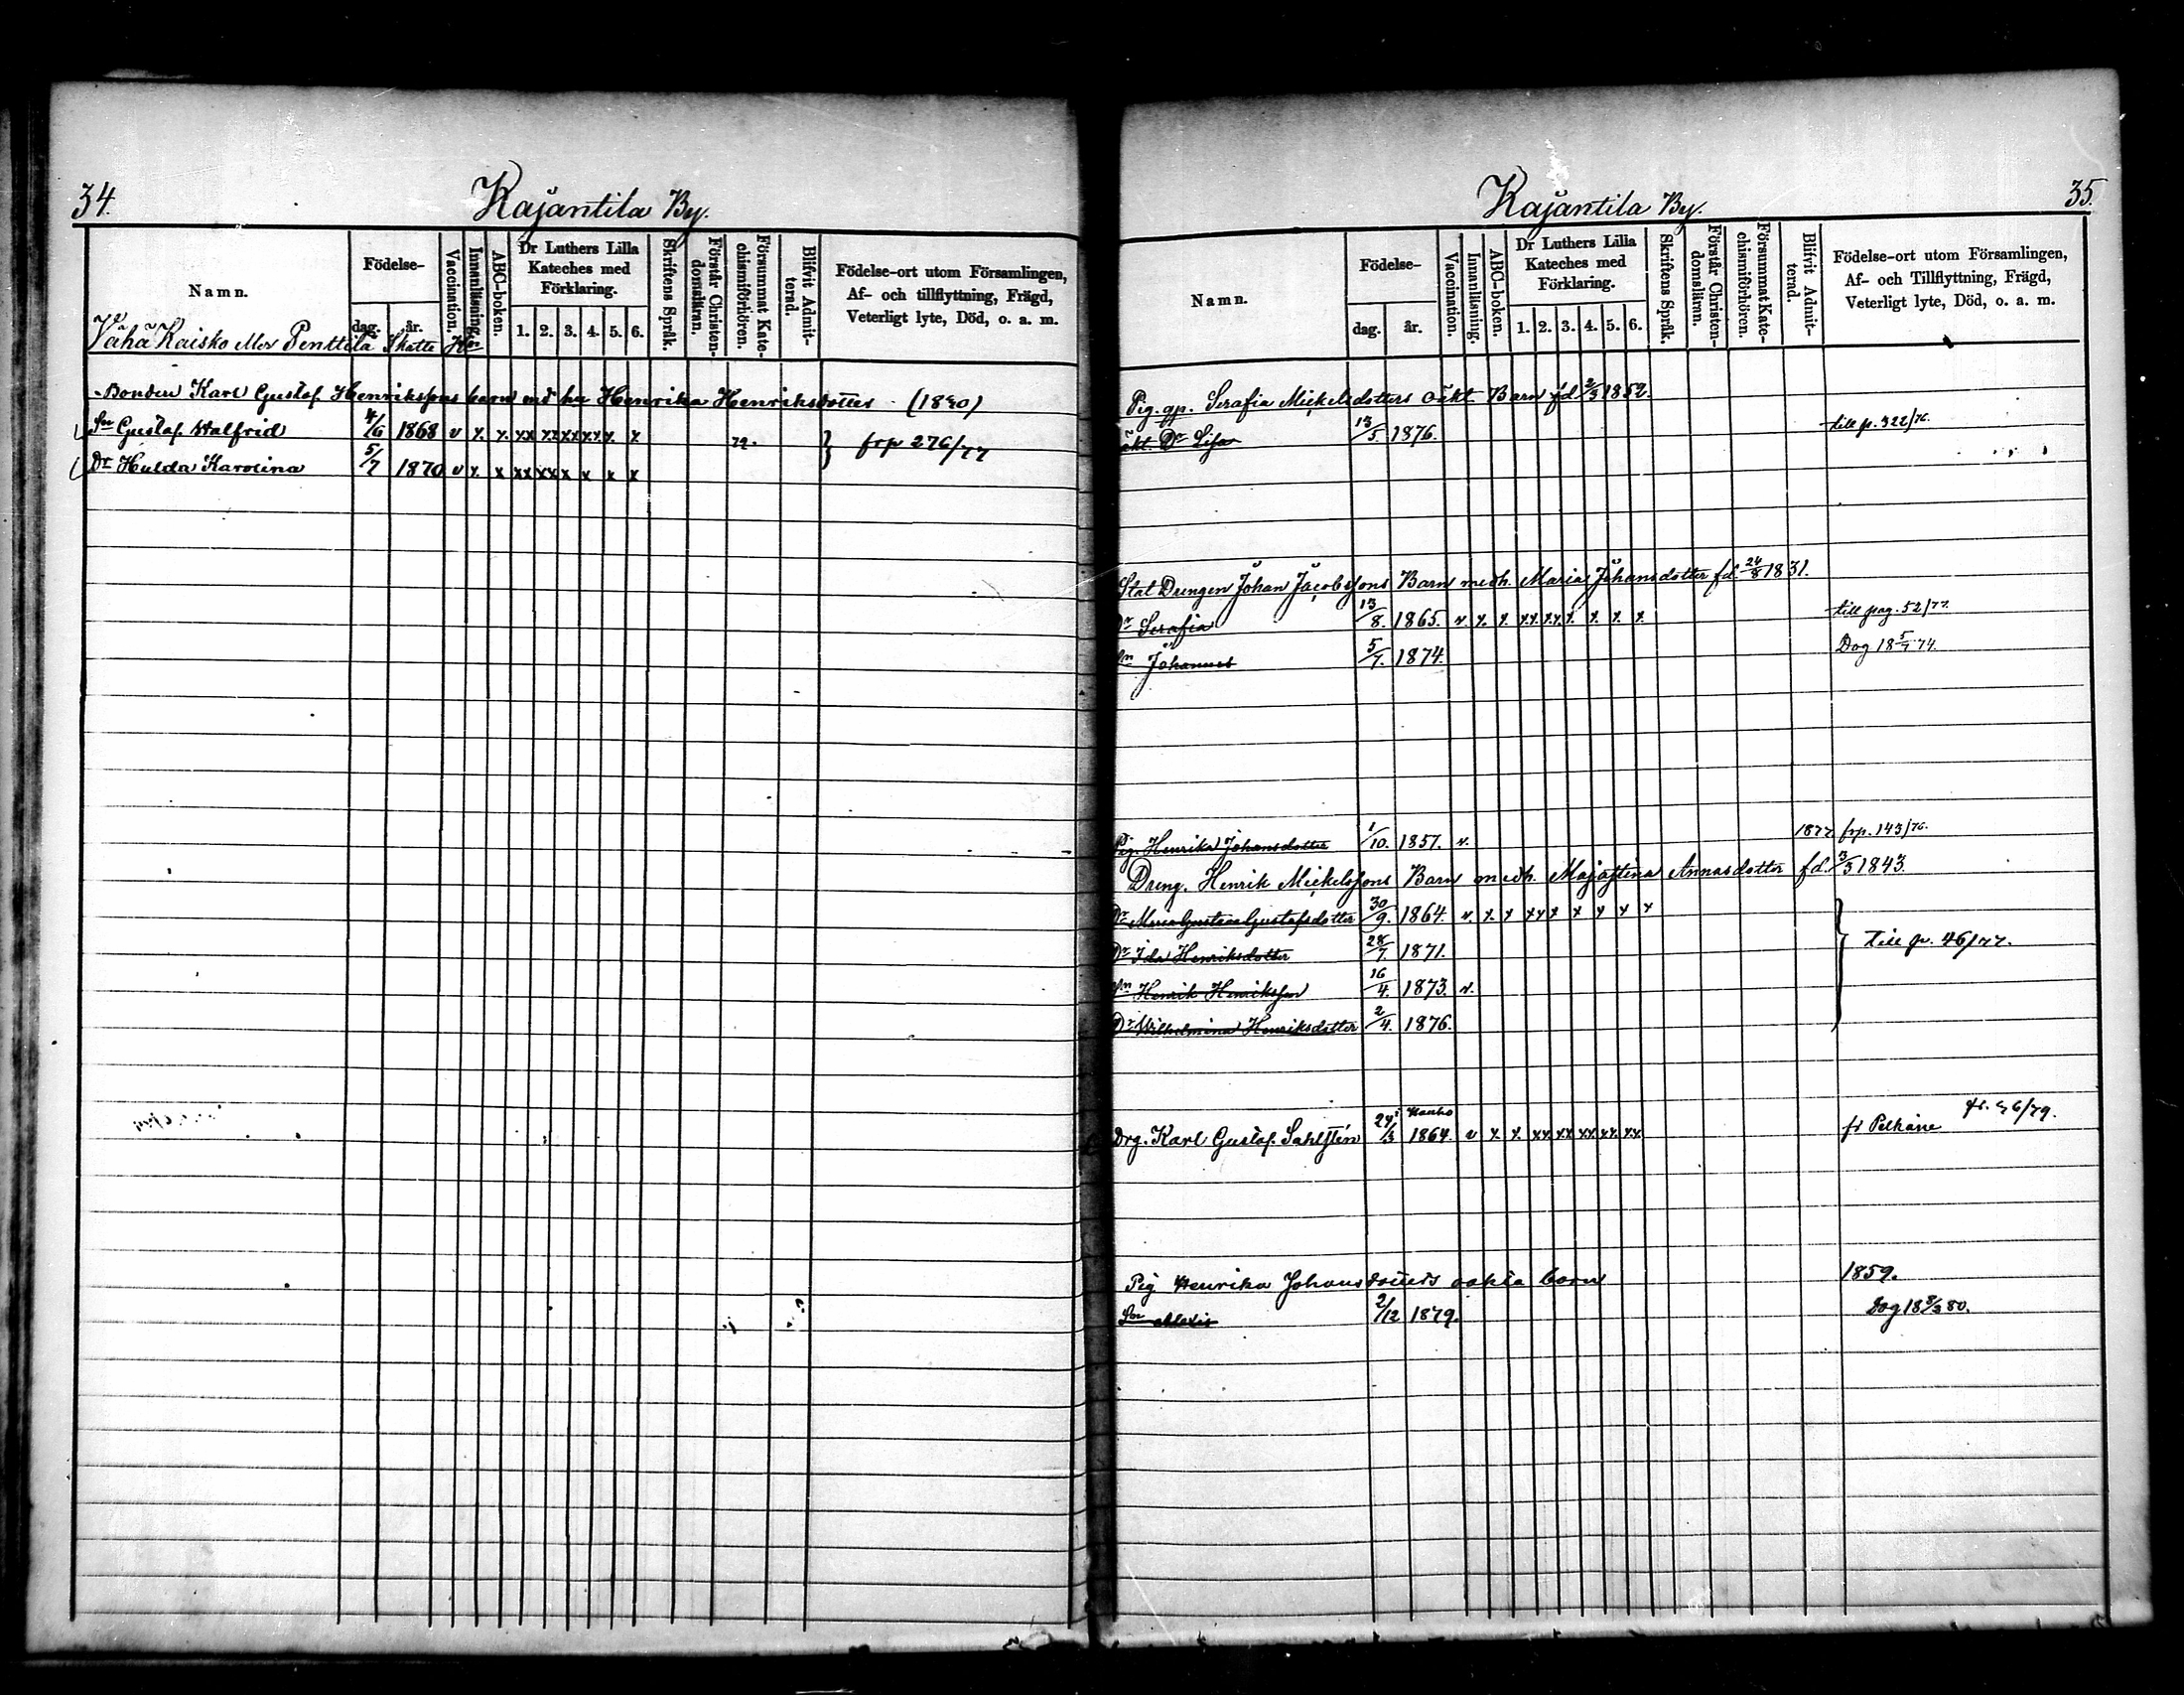 34.
Kajantila By.
Namn.
Födelse-
dag.
år.
Vaccination.
Innanläsning.
ABC-boken.
Dr Luthers Lilla
Kateches med
Förklaring.
1. 2. 3. 4. 5. 6.
Skriftens Språk.
Förstår Christen-
domsläran.
Försummat Kate-
chismiförhören.
Blifvit Admit-
terad.
Födelse-ort utom Församlingen,
Af- och tillflyttning, Frägd,
Veterligt lyte, Död, o. a. m.
Vähä Kaisko eller Penttilä Skatte
Bonden Karl Gustaf Henrikssons barn med hu Henrika Henriksdotter (1840)
Sn Gustaf Walfrid 4/6 1868 v x x xx xx xx xx x x
Dr Hulda Karolina 5/7 1870 v x x xx xx x x x x
} frp 276/77
35.
Kajantila By.
Namn.
Födelse-
dag.
år.
Vaccination.
Innanläsning.
ABC-boken.
Dr Luthers Lilla
Kateches med
Förklaring.
1. 2. 3. 4. 5. 6.
Skriftens Språk.
Förstår Christen-
domsläran.
Försummat Kate-
chismiförhören.
Blifvit Admit-
terad.
Födelse-ort utom Församlingen,
Af- och Tillflyttning, Frägd,
Veterligt lyte, Död, o. a. m.
Pig. gp. Serafia Mickelsdotters oäkt Barn fd 2/3 1852.
oäkt. Dr Lisa 13/5 1876. till p. 322/76.
Stat Drengen Johan Jacobssons Barn med h. Maria Johansdotter fd. 24/8 1831.
Dr Serafia 13/8. 1865. v. x. x xx. xx. x x. x. x. till pag. 52/77.
Sn Johannes 5/7. 1874. Dog 18 5/7 74.
Pig. Henrika Johansdotter 1/10. 1857. v. 1877 frp. 143/76.
Dreng. Henrik Mickelssons Barn med h. Majastina Annasdotter fd. 3/3 1843.
Dr Maria Gustava Gustafsdotter 30/9. 1864. v. x. x xx x x x x x
Dr Ida Henriksdotter 28/7. 1871.
} till p. 46/77.
Sn Henrik Henriksson 16/4. 1873. v.
Dr Wilhelmina Henriksdotter 2/4. 1876.
Drg. Karl Gustaf Sahlstén 24/3 1864. v x. x. xx. xx. xx. xx. xx. xx. fr Pelkäne
Pig Henrika Johansdotters oäkta barn 1859.
Sn Alexis 2/12 1879. Dog 18 8/3 80.